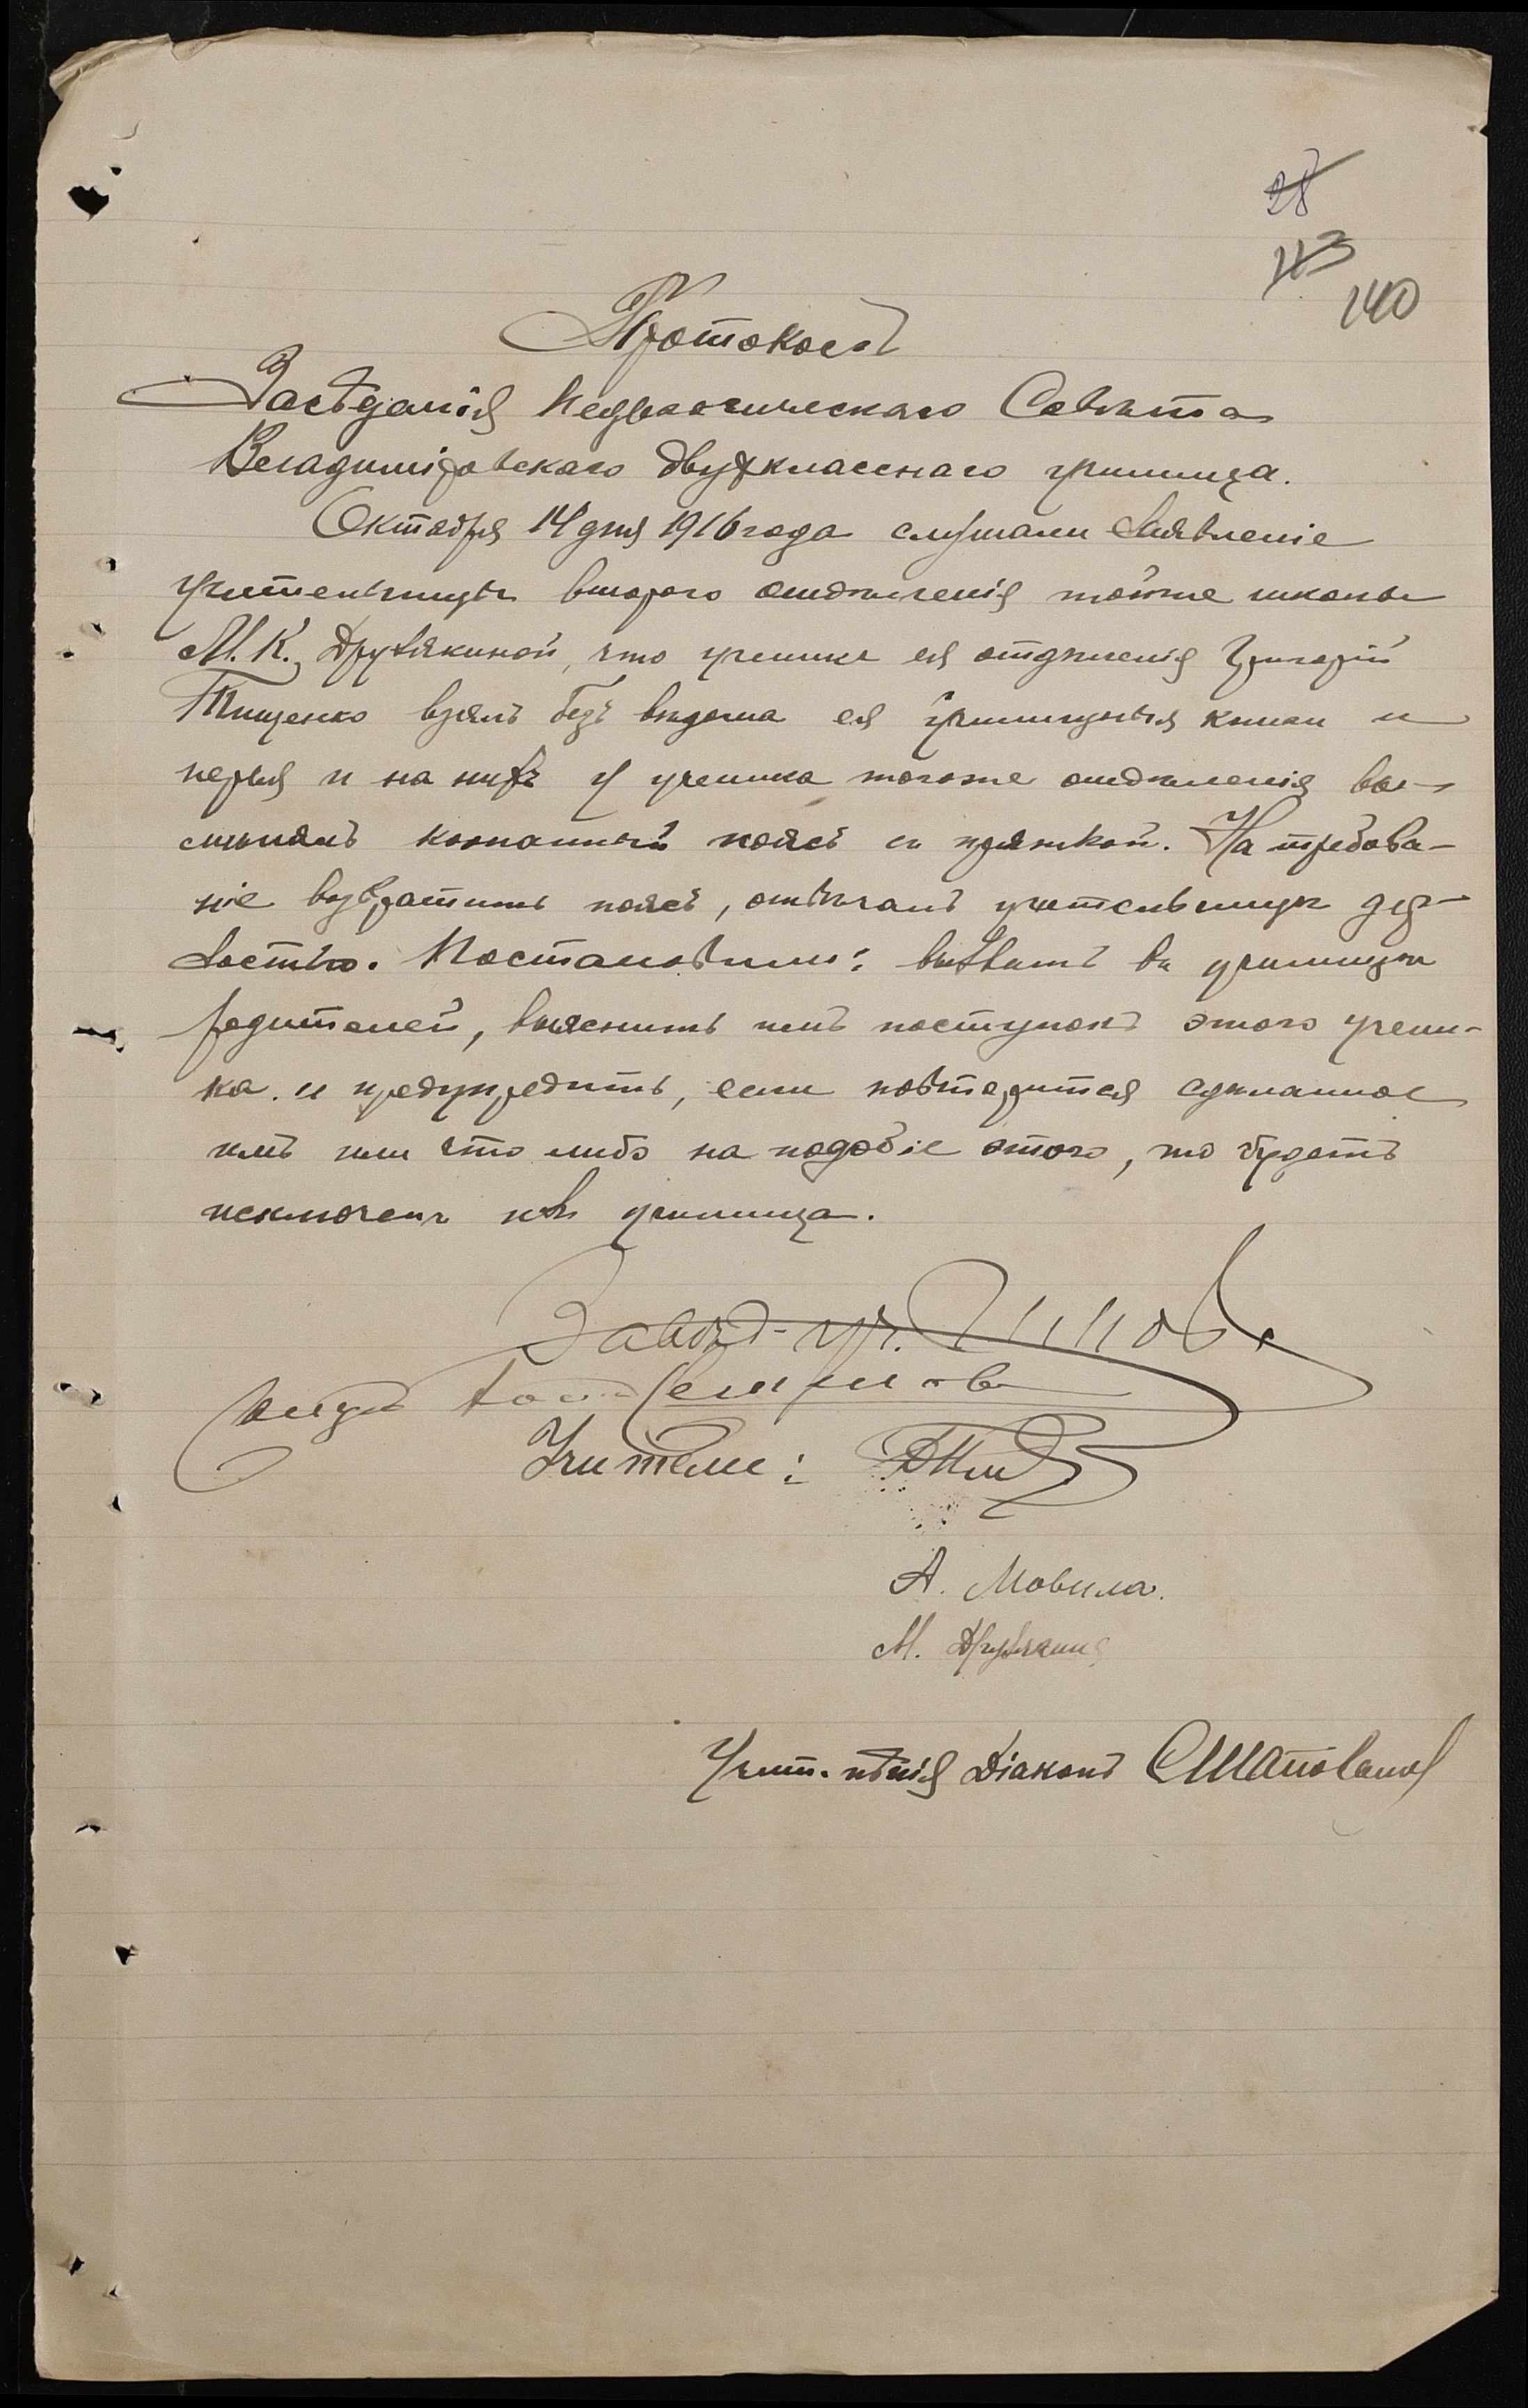 28
113
140
Протоколъ
Засѣданія Педагогическаго Совѣта
Владиміровскаго двухкласснаго училища.
Октября 14 дня 1916 года слушали заявленіе
учительницы второго отдѣленія тойже школы
М. К. Друзякиной, что ученикъ ея отдѣленія Григорій
Тищенко взялъ безъ вѣдома ея училищныя книги и
перья и на нихъ у ученика тогоже отдѣленія вы-
мѣнялъ кожанный поясъ съ пряжкой. На требова-
ніе возвратить поясъ, отвѣчалъ учительницѣ дер-
зостью. Постановили: вызвать въ училище
родителей, выяснить имъ поступокъ этого учени-
ка и предупредить, если повторится сдѣланное
имъ или что либо на подобіе этого, то будетъ
исключенъ изъ училища.
Завѣд. уч.
Учители:
А. Мовила.
М. Друзякина
Учит. пѣнія Діаконъ С Шаповаловъ